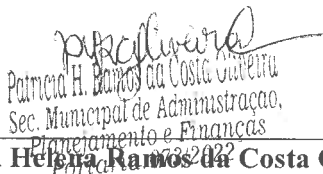 Patricia H. Ramos da Costa Oliveira
Sec. Municipal de Administração,
Planejamento e Finanças
Portaria 073/2022
Helena Ramos da Costa